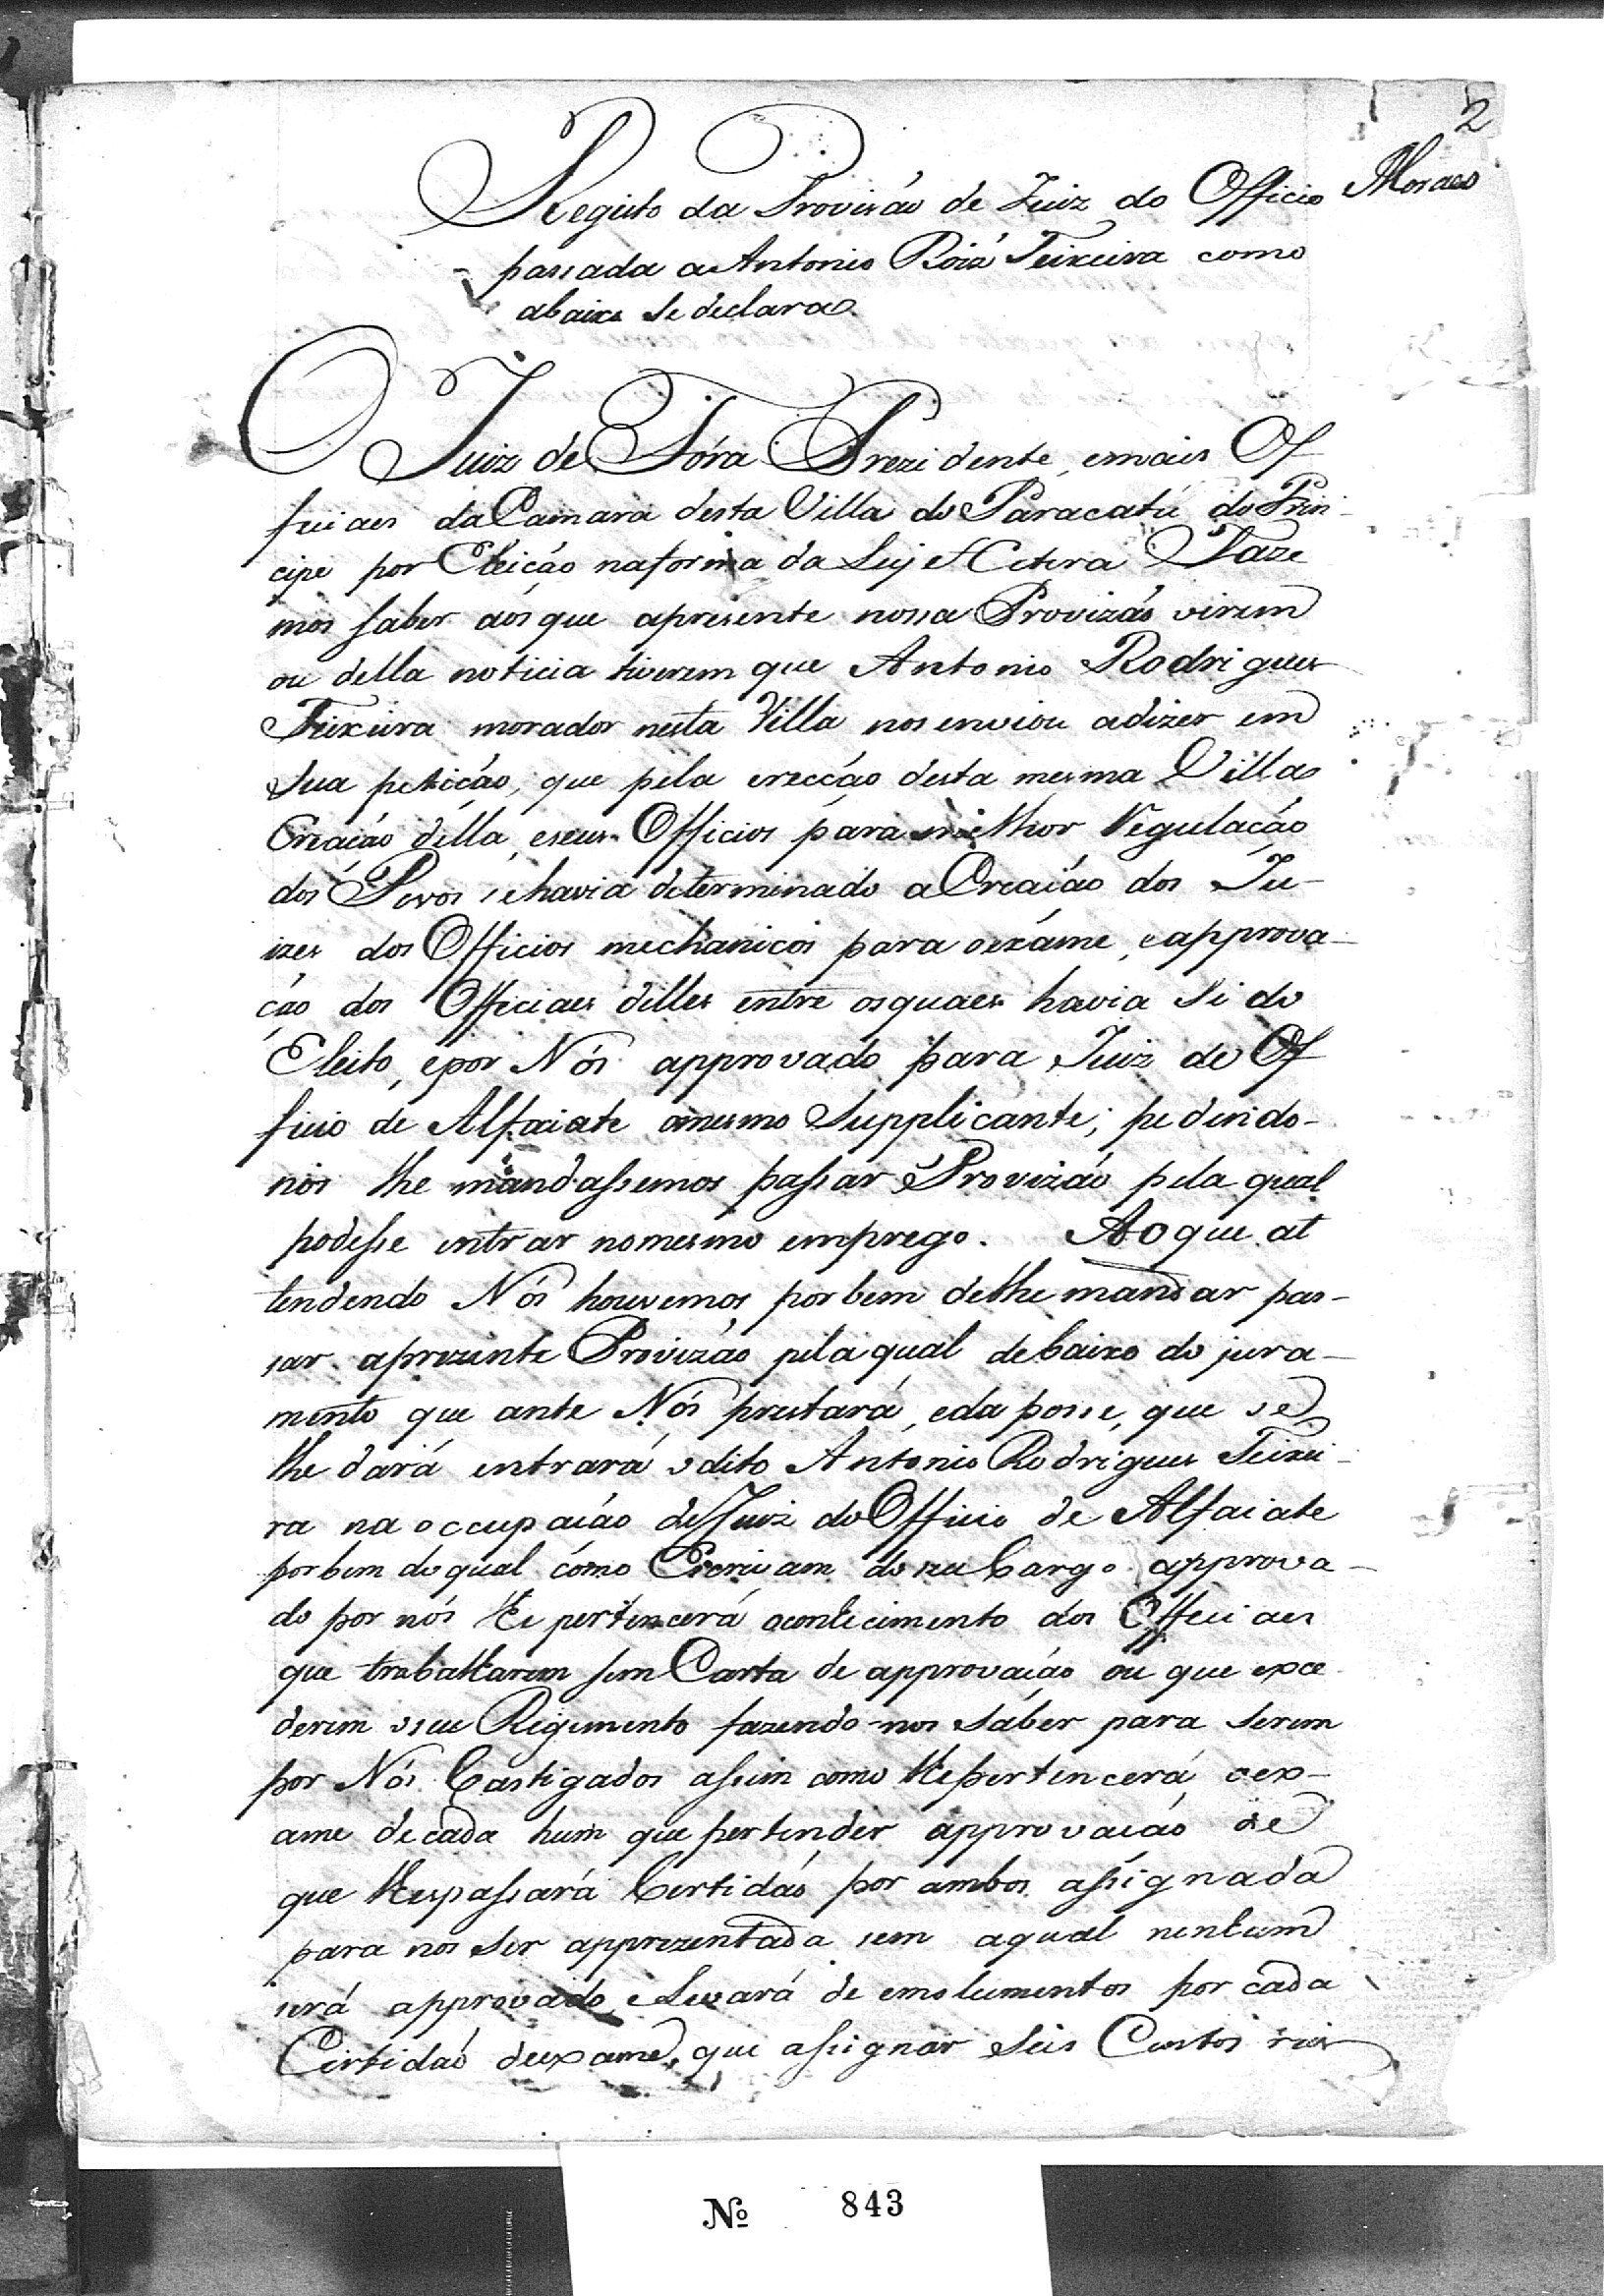 2
Moraes
Registo da Provizão de Juiz do Officio
passada a Antonio Roiz Teixeira como
abaixo se declara
O Juiz de Fóra Prezidente, emais Of
ficiaes da Camara desta Villa do Paracatú do Prin-
cipe por Eleição naforma da Ley et Cetera Faze
mos saber aós que apresente nossa Provizão virem
ou della noticia tiverem que Antonio Rodrigues
Teixeira morador nesta Villa nos enviou adizer em
sua petição, que pela erecção desta mesma Villa
Creação della, eseus Officios para milhor Regulação
dos Povos sehavia determinado a Creação dos Ju-
izes dos Officios mechanicos para oexáme, eapprova-
ção dos Officiaes delles entre osquaes havia sido
Eleito, epor Nós approvado para Juiz do Of
ficio de Alfaiate omesmo Supplicante; pedindo-
nos lhe mandassemos passar Provizão pela qual
podesse entrar nomesmo emprego. Ao que at
tendendo Nós houvemos porbem delhe mandar pas-
sar aprezente Provizão pelaqual debaixo do jura-
mento que ante Nós prestará, eda posse, que se
lhe dará entrará odito Antonio Rodrigues Teixei-
ra na occupação de Juiz do Officio de Alfaiate
porbem doqual cómo Escrivam doseu Cargo approva-
do por nós lhe pertencerá oconhecimento dos Officiaes
que trabalharem sem Carta de approvação ou que exce
derem oseu Regimento fazendo-nos sáber para serem
por Nós Castigados assim como lhepertencerá oex-
ame decada hum que pertender approvação de
que lhespassará Certidão por ambos assignada
para nos ser apprezentada sem aqual nenhum
será approvado, eLevará de emolumentos por cada
Certidaó deexame, que assignar Seis Centos reis
No 843